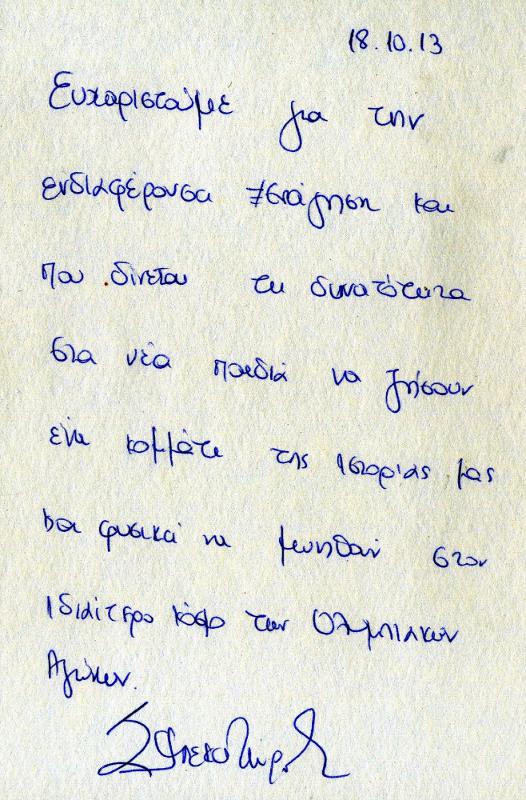 18.10.13
Ευχαριστούμε για την
ενδιαφέρουσα ξενάγηση και
που δίνεται τη δυνατότητα
στα νέα παιδιά να ζήσουν
ένα κομμάτι της ιστορίας μας
και φυσικά να μυηθούν στον
ιδιαίτερο κόσμο των Ολυμπιακών
Αγώνων.